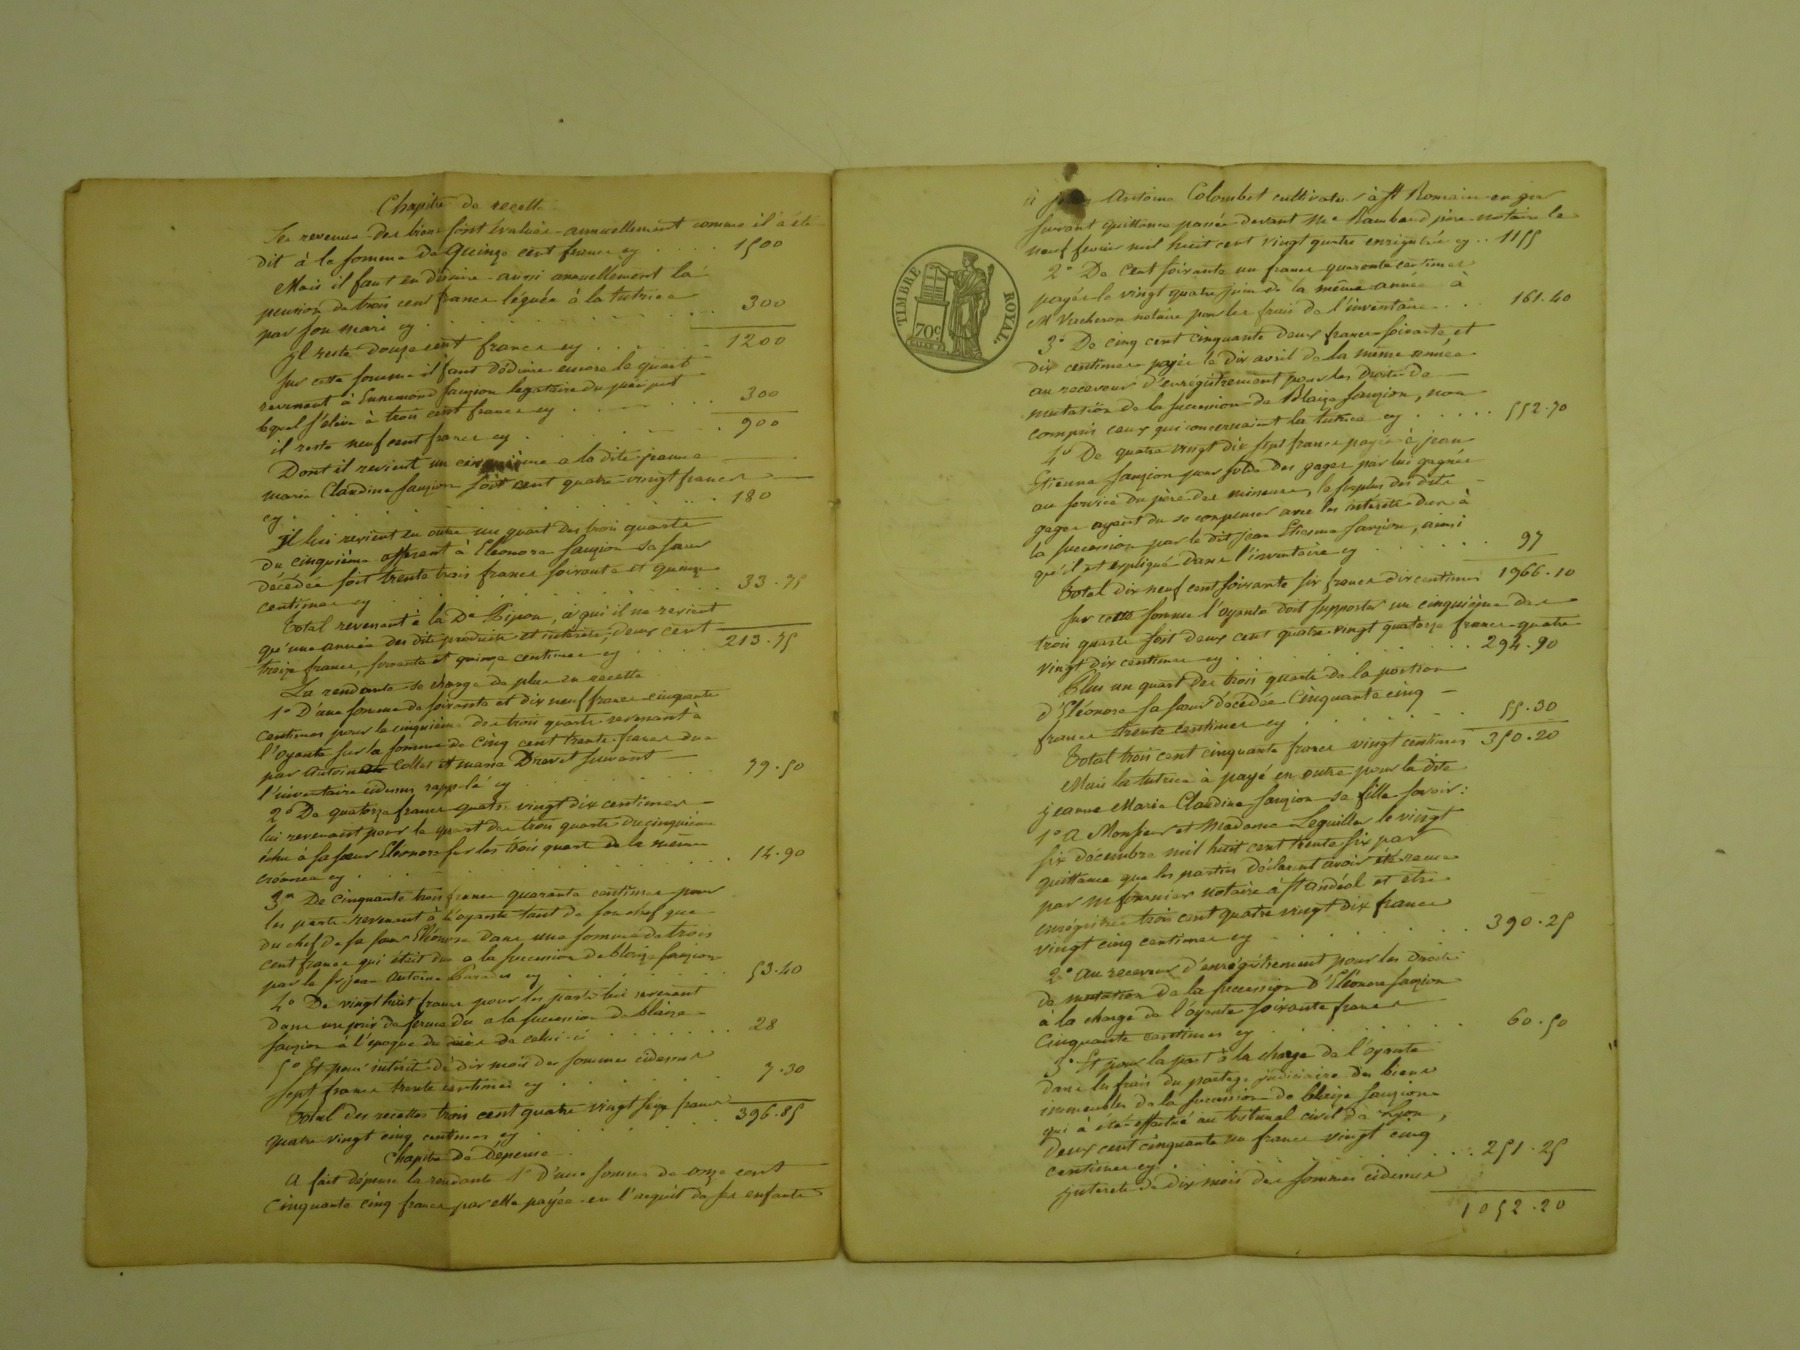 Chapitre de recette
Les revenus des biens sont évalués annuellement comme il a été
dit à la somme de Quinze cent francs cy . . . . 1500
Mais il faut en déduire aussi annuellement la
pension de trois cent francs léguée à la tutrice
par son mari cy . . . . . . . . . 300
Il reste douze cent francs cy . . . . . . 1200
Sur cette somme il faut déduire encore le quart
revenant à Ennemond fauzion legataire du
lequel s'élève à trois cent francs cy . . . . . 300
il reste neuf cent francs cy . . . . . . . 900
Dont il revient un cinquième a la dite jeanne
marie Claudine fauzion soit cent quatre vingt francs
cy . . . . . . . . . . . . . 180
Il lui revient en outre un quart des trois quarts
du cinquième afférant à Eléonore fauzion sa sœur
décédée soit trente trois francs soixante et quinze
centimes cy . . . . . . . . . . 33.75
Total revenant à la De Pipon, à qui il ne revient
qu'une année des dits produits et intérêts, deux cent
treize francs, soixante et quinze centimes cy . . . . . 213.75
La rendante se charge de plus en recette
1° D'une somme de soixante et dix neuf francs cinquante
centimes pour le cinquième des trois quarts revenant à
l'oyante sur la somme de Cinq cent trente francs due
par Antoine Collet et maria Drevet suivant
l'inventaire cidessus rappelé cy . . . . . . . 79.50
2° De quatorze francs quatre vingt dix centimes
lui revenant pour le quart des trois quarts du cinquième
échu à sa sœur Eléonore sur les trois quart de la même
créance cy . . . . . . . . . . . 14.90
3° De cinquante trois francs quarante centimes pour
les parts revenant à l'oyante tant de son chef que
du chef de sa sœur Eléonore dans une somme de trois
cent francs qui était due a la succession de blaize fauzion
par le sr jean Antoine cy . . . . . . . 53.40
4° De vingt huit francs pour les parts lui revenant
dans un prix de ferme du a la succession de blaize
fauzion à l'époque du décès de celui-ci . . . . . . 28
5° Et pour intérêt de dix mois des sommes cidessus
sept francs trente centimes cy . . . . . . 7.30
Total des recettes trois cent quatre vingt seize francs
quatre vingt cinq centimes cy . . . . . . 396.85
Chapitre De Dépense
A fait dépense la rendante 1° D'une somme de onze cent
Cinquante cinq francs par elle payée en l'acquit de ses enfants
à jean Antoine Colombet cultivateur à St Romain en gier
suivant quittance passée devant Me Rambaud père notaire le
neuf février mil huit cent vingt quatre enrigistrée cy . . 1155
2° De Cent soixante un francs quarante centimes
payés le vingt quatre juin de la même année à
Me Vacheron notaire pour les frais de l'inventaire . . . 161.40
3° De cinq cent cinquante deux francs soixante et
dix centimes payés le dix avril de la même année
au receveur d'enrégistrement pour les Droits de
mutation de la succession de Blaize fauzion, non
compris ceux qui concernaient la tutrice cy . . . . . 552.70
4° De quatre vingt dix sept francs payés à jean
Etienne fauzion pour solde des gages par lui gagnés
au service du père des mineurs, le surplus des dits
gages ayant du se compenser avec les intérêts dus à
la succession par le dit jean Etienne fauzion, ainsi
qu'il est expliqué dans l'inventaire cy . . . . . . 97
Total dix neuf cent soixante six francs dix centimes 1966.10
Sur cette somme l'oyante doit supporter un cinquième des
trois quarts soit deux cent quatre vingt quatorze francs quatre
vingt dix centimes cy . . . . . . . . 294.90
Plus un quart des trois quarts de la portion
d'Eléonore sa sœur décédée Cinquante cinq
francs trente centimes cy . . . . . . . 55.30
Total trois cent cinquante francs vingt centimes 350.20
Mais la tutrice à payé en outre pour la dite
jeanne Marie Claudine fauzion sa fille savoir :
1° A Monsieur et Madame Leguiller le vingt
six décembre mil huit cent trente six par
quittance que les parties déclarent avoir été reçue
par me fournier notaire à St andéol et être
enrégistrée trois cent quatre vingt dix francs
vingt cinq centimes cy . . . . . . . . 390.25
2° Au receveur d'enrégistrement pour les Droits
de mutation de la succession d'Eléonore fauzion
à la charge de l'oyante soixante francs
cinquante centimes cy . . . . . . . . 60.50
3° Et pour la part à la charge de l'oyante
dans les frais du partage judiciaire des biens
immeubles de la succession de blaize fauzion
qui a été effectué au tribunal civil de Lyon,
deux cent cinquante un francs vingt cinq
centimes cy . . . . . . . . . . 251.25
Interets de dix mois des sommes cidessus
1052.20
TIMBRE ROYAL.
70c